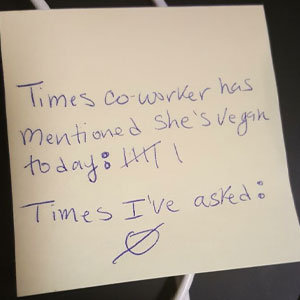 Times co-worker has
mentioned she's vegan
today: 𝍸 |
Times I've asked:
Ø